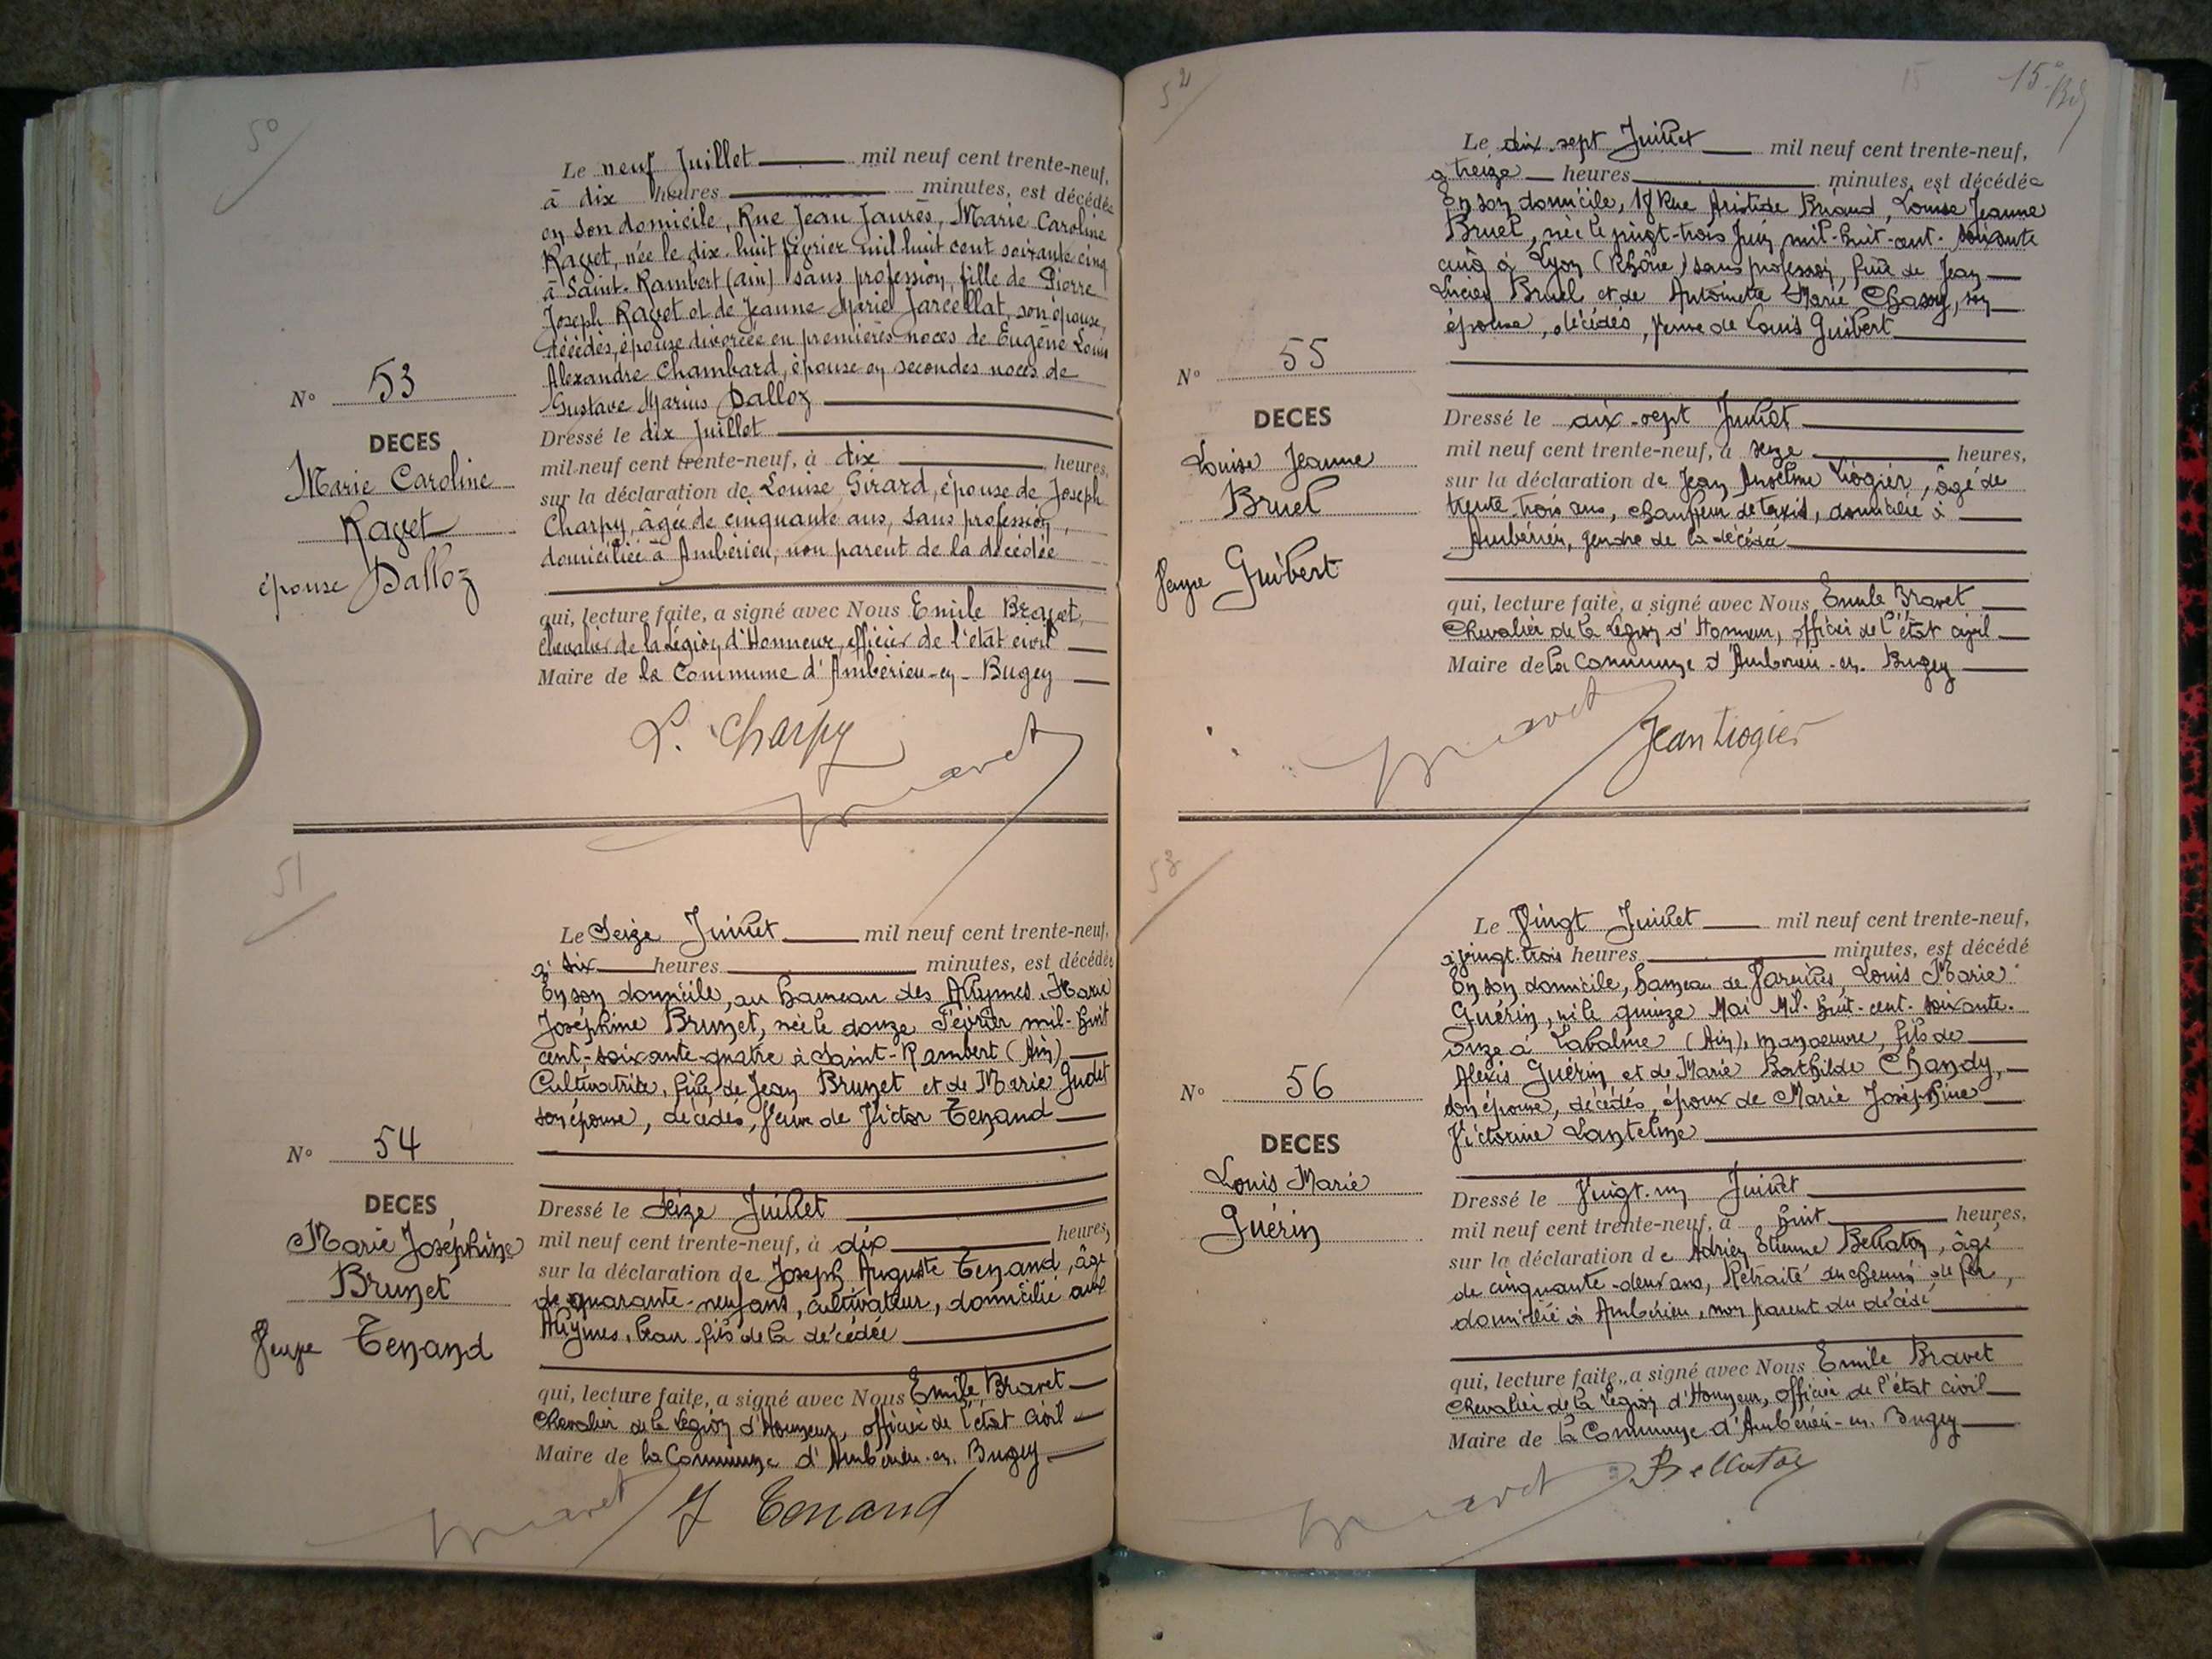 50
Le neuf Juillet mil neuf cent trente-neuf,
à dix heures minutes, est décédée
en son domicile, Rue Jean Jaurès, Marie Caroline
Ravet, née le dix-huit février mil huit cent soixante cinq
à Saint-Rambert (ain) sans profession, fille de Pierre
Joseph Ravet et de Jeanne Marie Jarcellat, son épouse,
décédés, épouse divorcée en premières noces de Eugène Louis
Alexandre Chambard, épouse en secondes noces de
Gustave Marius Dalloz
N° 53
DECES
Marie Caroline
Ravet
épouse Dalloz
Dressé le dix Juillet
mil neuf cent trente-neuf, à dix heures,
sur la déclaration de Louise Girard, épouse de Joseph
Charpy, âgée de cinquante ans, sans profession,
domiciliée à Ambérieu, non parent de la décédée
qui, lecture faite, a signé avec Nous Emile Bravet,
chevalier de la Légion d'Honneur, officier de l'état civil
Maire de la Commune d'Ambérieu-en-Bugey
L. Charpy
Bravet
51
Le Seize Juillet mil neuf cent trente-neuf,
à six heures minutes, est décédée
En son domicile, au hameau des Allymes, Marie
Joséphine Brunet, née le douze Février mil-huit
cent-soixante-quatre à Saint-Rambert (Ain)
Cultivatrice, fille de Jean Brunet et de Marie Gudet
son épouse, décédés, Veuve de Victor Tenand
N° 54
DECES
Marie Joséphine
Brunet
Veuve Tenand
Dressé le Seize Juillet
mil neuf cent trente-neuf, à dix heures,
sur la déclaration de Joseph Auguste Tenand, âgé
de quarante-neuf ans, cultivateur, domicilié aux
Allymes, beau-fils de la décédée
qui, lecture faite, a signé avec Nous Emile Bravet
Chevalier de la Légion d'Honneur, officier de l'état civil
Maire de la Commune d'Ambérieu-en-Bugey
Bravet
J Tenand
52
15
15e
Le dix-sept Juillet mil neuf cent trente-neuf,
à treize heures minutes, est décédée
En son domicile, 18 Rue Aristide Briand, Louise Jeanne
Bruel, née le vingt-trois Juin mil-huit-cent-soixante
cinq à Lyon (Rhône) sans profession, fille de Jean
Lucien Bruel et de Antoinette Marie Chasoy, son
épouse, décédés, veuve de Louis Guibert
N° 55
DECES
Louise Jeanne
Bruel
Veuve Guibert
Dressé le dix-sept Juillet
mil neuf cent trente-neuf, à seize heures,
sur la déclaration de Jean Anselme Liogier, âgé de
trente-trois ans, chauffeur de taxis, domicilié à
Ambérieu, gendre de la décédée
qui, lecture faite, a signé avec Nous Emile Bravet
Chevalier de la Légion d'Honneur, officier de l'état civil
Maire de la Commune d'Ambérieu-en-Bugey
Bravet
Jean Liogier
53
Le Vingt Juillet mil neuf cent trente-neuf,
à vingt-trois heures minutes, est décédé
En son domicile, hameau de Vareilles, Louis Marie
Guérin, né le quinze Mai Mil-huit-cent-soixante-
onze à Labalme (Ain), manoeuvre, fils de
Alexis Guérin et de Marie Bathilde Chandy,
son épouse, décédés, époux de Marie Joséphine
Victorine Lantelme
N° 56
DECES
Louis Marie
Guérin
Dressé le Vingt-un Juillet
mil neuf cent trente-neuf, à huit heures,
sur la déclaration de Adrien Etienne Bellaton, âgé
de cinquante-deux ans, Retraité du chemin de fer,
domicilié à Ambérieu, non parent du décédé
qui, lecture faite, a signé avec Nous Emile Bravet
Chevalier de la Légion d'Honneur, officier de l'état civil
Maire de la Commune d'Ambérieu-en-Bugey
Bravet
Bellaton